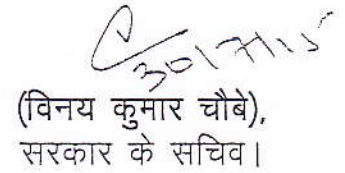 (विनय कुमार चौबे),
सरकार के सचिव।